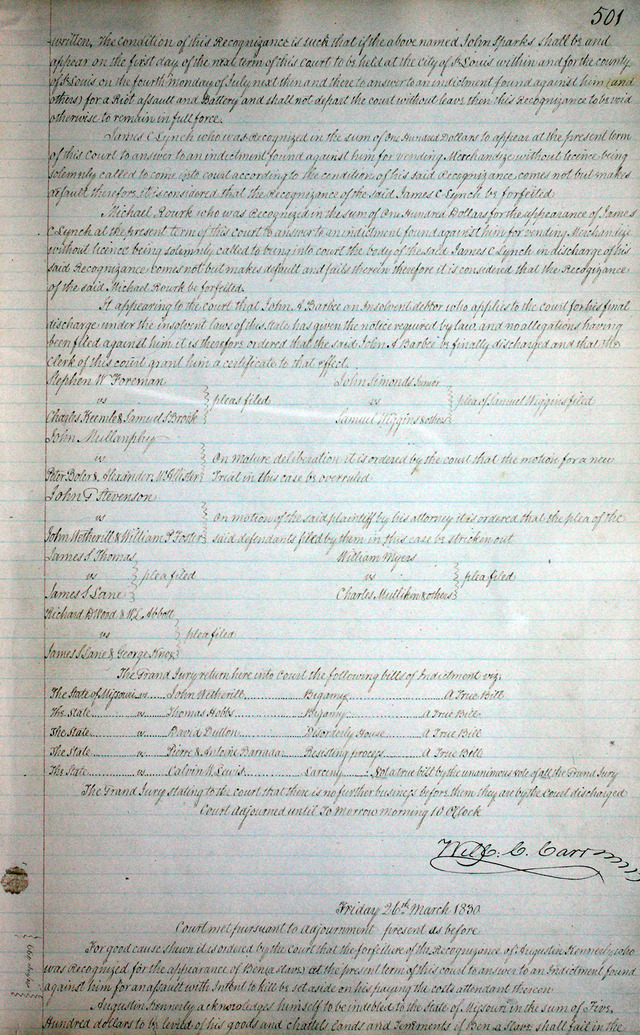 501
written, The condition of this Recognizance is such that if the above named John Sparks shall be and
appear on the first day of the next term of this court to be held at the city of St Louis within and for the county
of St Louis on the fourth monday of July next then and there to answer to an indictment found against him (and
others) for a Riot assault and Battery and shall not depart the court without leave then this Recognizance to be void
otherwise to remain in full force.
James C Lynch who was Recognized in the sum of One Hundred Dollars to appear at the present term
of this Court to answer to an indictment found against him for vending Merchandize without licence being
solemnly called to come into court according to the condition of his said Recognizance comes not but makes
default therefore it is considered that the Recognizance of the said James C Lynch be forfeited
Michael Rourk who was Recognized in the sum of One Hundred Dollars for the appearance of James
C Lynch at the present term of this court to answer to an indictment found against him for vending Merchandize
without licence being solemnly called to bring into court the body of the said James C Lynch in discharge of his
said Recognizance comes not but makes default and fails therein therefore it is considered that the Recognizance
of the said Michael Rourk be forfeited.
It appearing to the court that John A Barbee an Insolvent debtor who applies to the court for his final
discharge under the insolvent laws of this state has given the notice required by law and no allegations having
been filed against him it is therefore ordered that the said John A Barbee be finally discharged and that the
Clerk of this court grant him a certificate to that effect.
Stephen W Foreman
vs } pleas filed
Charles Keemle & Samuel S Brook
John Simonds Junior
vs } plea of Samuel Wiggins filed
Samuel Wiggins & others
John Mullanphy
vs } On mature deliberation it is ordered by the court that the motion for a new
Peter Boler & Alexander Trial in this case be overruled
John T Stevenson
vs } On motion of the said plaintiff by his attorney it is ordered that the plea of the
John Wetherill & William Foster said defendants filed by them in this case be stricken out
James S Thomas
vs } plea filed
James S Lane
William Myers
vs } plea filed
Charles Mulliken & others
Richard D Wood & W L Abbott
vs } plea filed
James S Lane & George Knox
The Grand Jury return here into Court the following bills of Indictment viz.
The State of Missouri vs John Wetherill Bigamy A True Bill
The State vs Thomas Hobbs Bigamy A True Bill
The State vs David Dutton Disorderly House A True Bill
The State vs Pierre & Antoine Barrada Resisting process A True Bill
The State vs Calvin H Lewis Larceny Not a true bill by the unanimous vote of all the Grand Jury
The Grand Jury stating to the court that there is no further business before them they are by the Court discharged
Court adjourned until To Morrow morning 10 O'Clock
Will: C. Carr
Friday 26th March 1830
Court met pursuant to adjournment present as before
For good cause shewn it is ordered by the Court that the forfeiture of the Recognizance of Augustin Kennerly who
was Recognized for the appearance of Ben (a slave) at the present term of this court to answer to an Indictment found
against him for an assault with Intent to kill be set aside on his paying the costs attendant thereon
Augustin Kennerly acknowledges himself to be indebted to the State of Missouri in the sum of Five
Hundred dollars to be levied of his goods and chattels Lands and Tenements if Ben a Slave shall fail in the